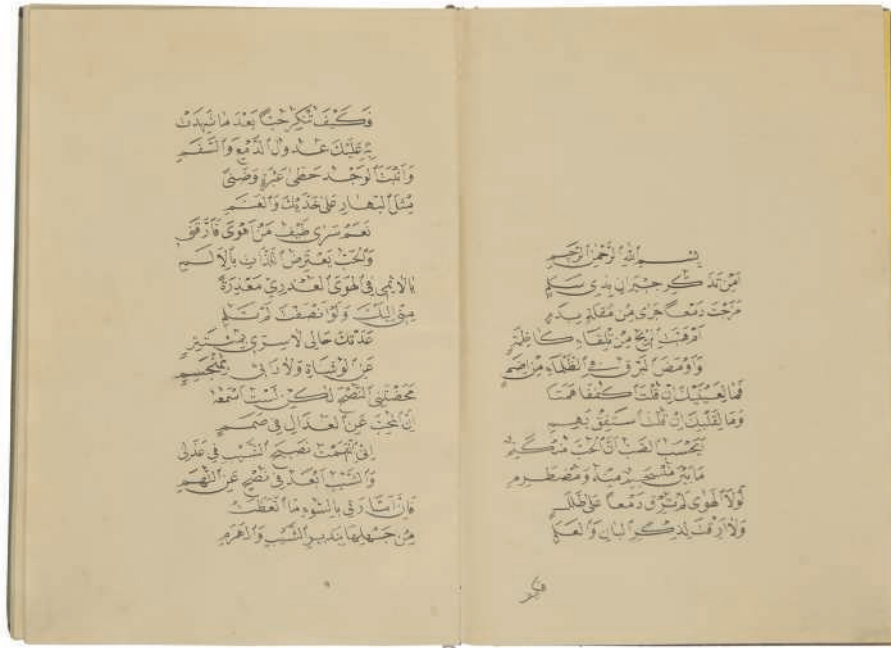 بِسْمِ اللهِ الرَّحْمٰنِ الرَّحِيمِ
اَمِنْ تَذَكُّرِ جِيرَانٍ بِذِي سَلَمِ
مَزَجْتَ دَمْعًا جَرٰى مِنْ مُقْلَةٍ بِدَمِ
اَمْ هَبَّتِ الرِّيحُ مِنْ تِلْقَاءِ كَاظِمَةٍ
وَاَوْمَضَ الْبَرْقُ فِي الظَّلْمَاءِ مِنْ اِضَمِ
فَمَا لِعَيْنَيْكَ اِنْ قُلْتَ اكْفُفَا هَمَتَا
وَمَا لِقَلْبِكَ اِنْ قُلْتَ اسْتَفِقْ يَهِمِ
اَيَحْسَبُ الصَّبُّ اَنَّ الْحُبَّ مُنْكَتِمٌ
مَا بَيْنَ مُنْسَجِمٍ مِنْهُ وَمُضْطَرِمِ
لَوْلَا الْهَوٰى لَمْ تُرِقْ دَمْعًا عَلٰى طَلَلٍ
وَلَا اَرِقْتَ لِذِكْرِ الْبَانِ وَالْعَلَمِ
فكيف
فَكَيْفَ تُنْكِرُ حُبًّا بَعْدَ مَا شَهِدَتْ
بِهِ عَلَيْكَ عُدُولُ الدَّمْعِ وَالسَّقَمِ
وَاَثْبَتَ الْوَجْدُ خَطَّيْ عَبْرَةٍ وَضَنًى
مِثْلَ الْبَهَارِ عَلٰى خَدَّيْكَ وَالْعَنَمِ
نَعَمْ سَرٰى طَيْفُ مَنْ اَهْوٰى فَاَرَّقَنِي
وَالْحُبُّ يَعْتَرِضُ اللَّذَّاتِ بِالْاَلَمِ
يَا لَائِمِي فِي الْهَوَى الْعُذْرِيِّ مَعْذِرَةً
مِنِّي اِلَيْكَ وَلَوْ اَنْصَفْتَ لَمْ تَلُمِ
عَدَتْكَ حَالِي لَا سِرِّي بِمُسْتَتِرٍ
عَنِ الْوُشَاةِ وَلَا دَائِي بِمُنْحَسِمِ
مَحَّضْتَنِي النُّصْحَ لٰكِنْ لَسْتُ اَسْمَعُهُ
اِنَّ الْمُحِبَّ عَنِ الْعُذَّالِ فِي صَمَمِ
اِنِّي اتَّهَمْتُ نَصِيحَ الشَّيْبِ فِي عَذَلِي
وَالشَّيْبُ اَبْعَدُ فِي نُصْحٍ عَنِ التُّهَمِ
فَاِنَّ اَمَّارَتِي بِالسُّوءِ مَا اتَّعَظَتْ
مِنْ جَهْلِهَا بِنَذِيرِ الشَّيْبِ وَالْهَرَمِ